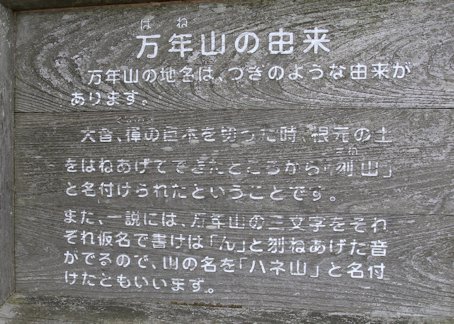 はね
万年山の由来
万年山の地名は、つぎのような由来が
あります。
大昔、樺の巨木を切った時、根元の土
をはねあげてできたところから「刎山」
と名付けられたということです。
また、一説には、万年山の三文字をそれ
それ仮名で書けは「ん」と刎ねあげた音
がでるので、山の名を「ハネ山」と名付
けたともいいます。